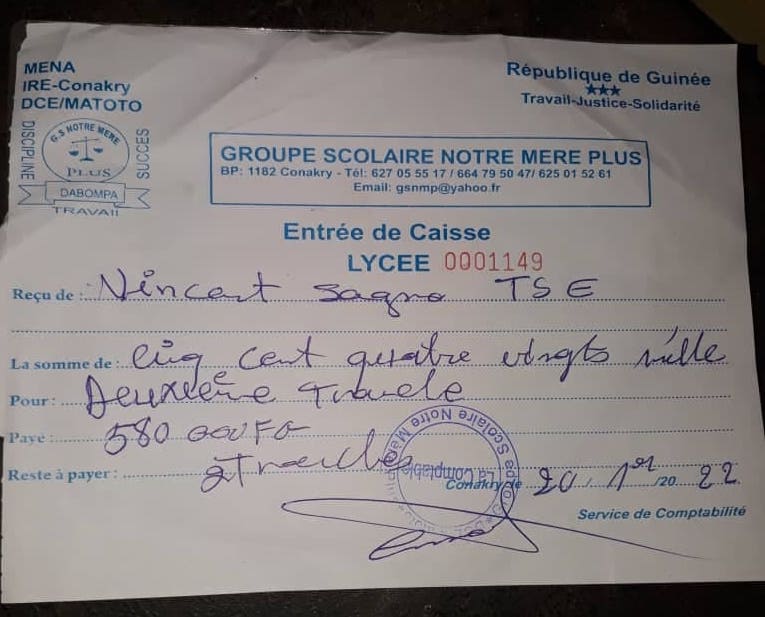 MENA
IRE-Conakry
DCE/MATOTO
République de Guinée
Travail-Justice-Solidarité
DISCIPLINE
G.S NOTRE MERE
PLUS
SUCCES
DABOMPA
TRAVAIL
GROUPE SCOLAIRE NOTRE MERE PLUS
BP: 1182 Conakry - Tél: 627 05 55 17 / 664 79 50 47/ 625 01 52 61
Email: gsnmp@yahoo.fr
Entrée de Caisse
LYCEE 0001149
Reçu de : Vincent Sagno TSE
La somme de : Cinq cent quatre vingts mille
Pour : Deuxième Tranche
Payé : 580 000 FG
Reste à payer :
Scolaire Notre
La Comptable
Conakry le 20 / 1er /20 22
Service de Comptabilité